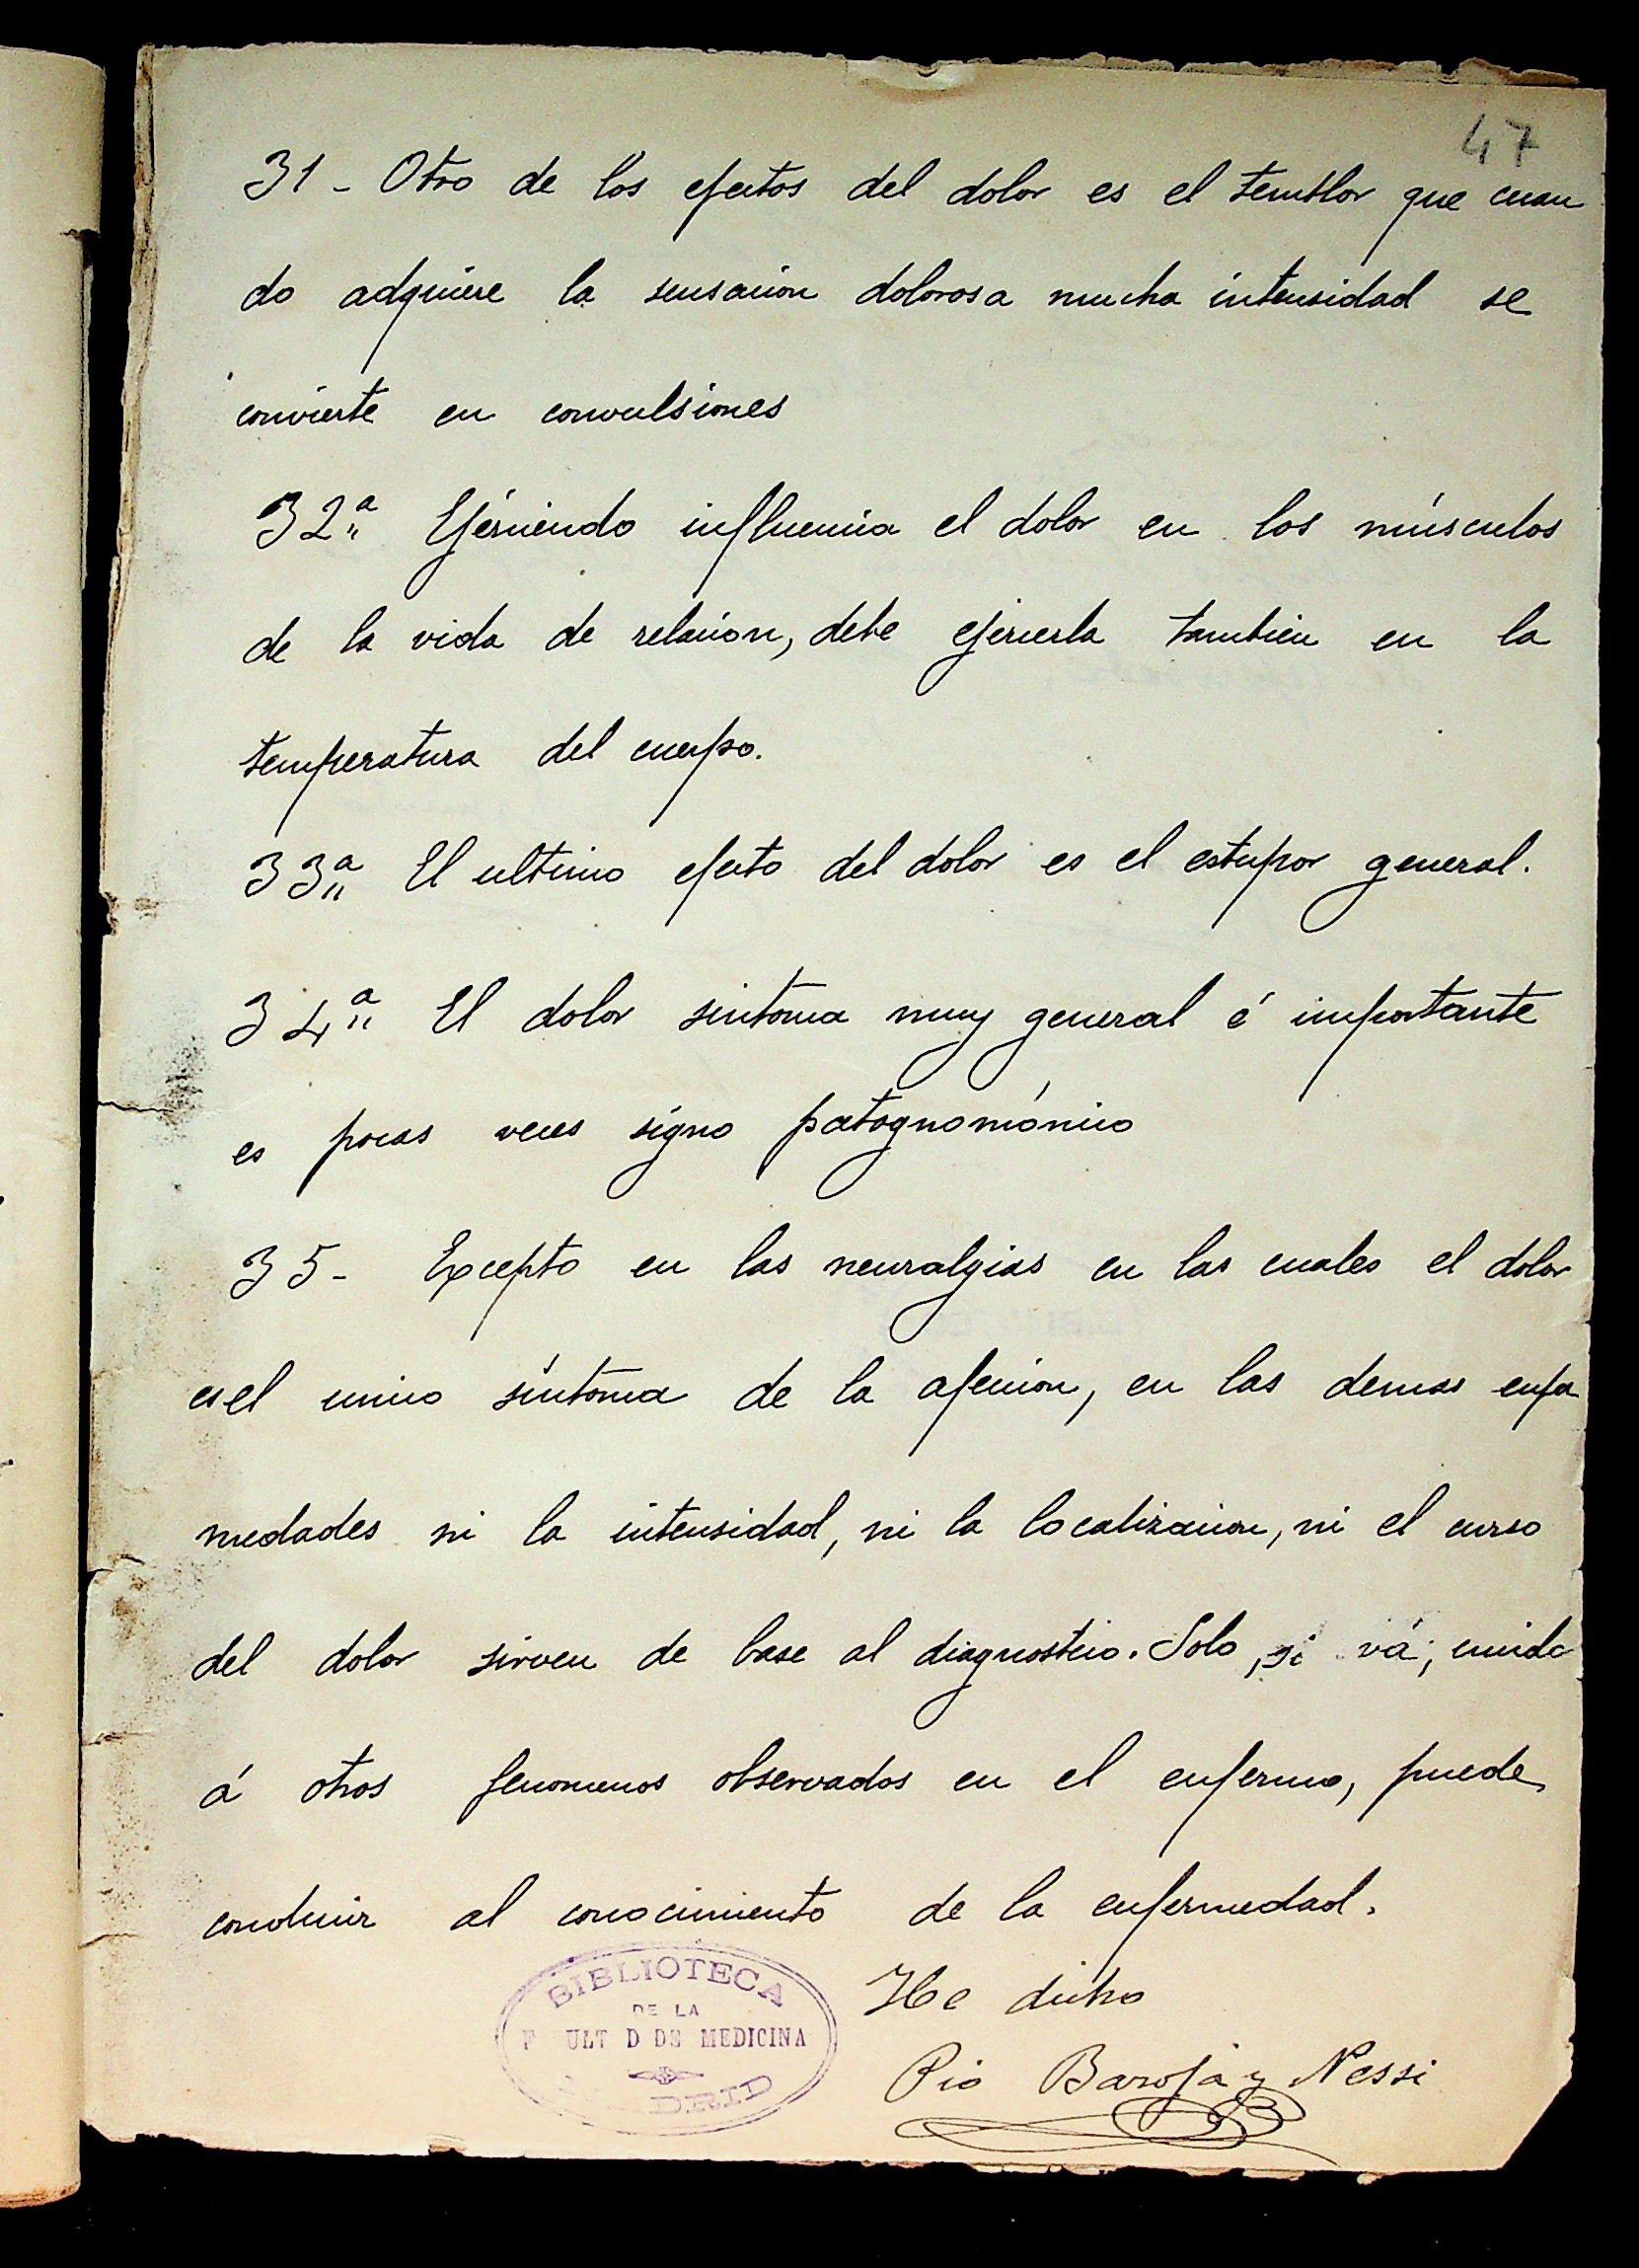 47
31 - Otro de los efectos del dolor es el temblor que cuan
do adquiere la sensacion dolorosa mucha intensidad se
convierte en convulsiones
32ª Ejerciendo influencia el dolor en los músculos
de la vida de relacion, debe ejercerla tambien en la
temperatura del cuerpo.
33ª El ultimo efecto del dolor es el estupor general.
34ª El dolor sintoma muy general é importante
es pocas veces signo patognomónico
35 - Excepto en las neuralgias en las cuales el dolor
es el unico síntoma de la afeccion, en las demas enfer
medades ni la intensidad, ni la localizacion, ni el curso
del dolor sirven de base al diagnostico. Solo, si vá, unido
á otros fenomenos observados en el enfermo, puede
conducir al conocimiento de la enfermedad.
He dicho
Pio Baroja y Nessi
BIBLIOTECA
DE LA
F ULT D DE MEDICINA
DRID